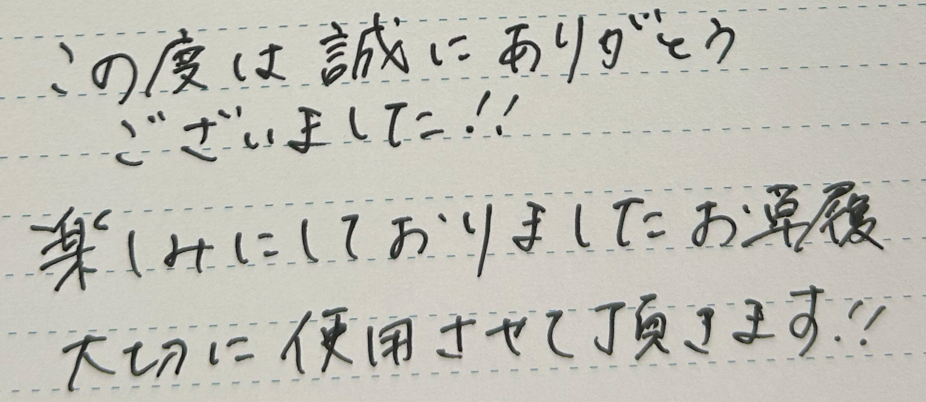 この度は誠にありがとう
ございました!!
楽しみにしておりましたお草履
大切に使用させて頂きます!!